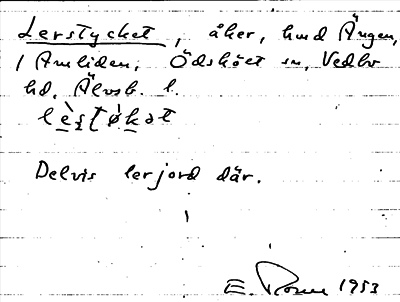 Lerstycket, åker, hmd Ängen,
1 Amliden, Ödsköet sn, Vedbo
hd, Älvsb. l.
Delvis lerjord där.
E. 1953